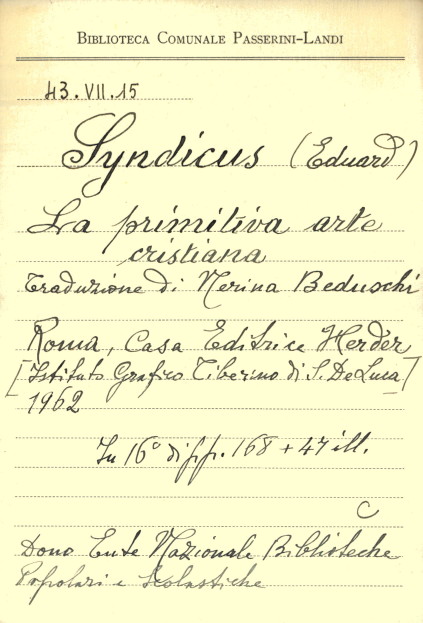 BIBLIOTECA COMUNALE PASSERINI-LANDI
43.VII.15
Syndicus (Eduard)
La primitiva arte
cristiana
Traduzione di Nerina Beduschi
Roma, Casa Editrice Herder
[Istituto Grafico Tiberino di S. De Luca]
1962
In 16° di pp. 168 + 47 ill.
C
Dono Ente Nazionale Biblioteche
Popolari e Scolastiche